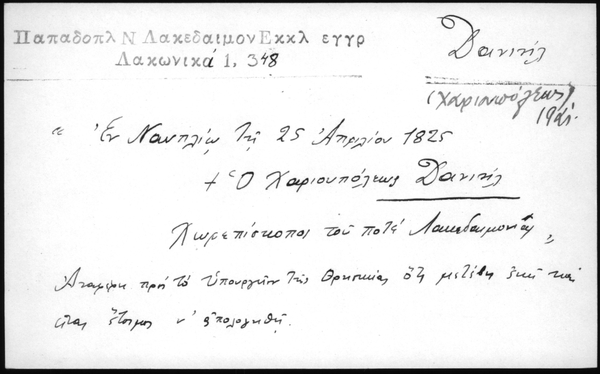 Παπαδοπλ Ν Λακεδαιμον Εκκλ εγγρ
Λακωνικά 1, 348
Δανιήλ
(Χαριουπόλεως)
" Ἐν Ναυπλίῳ τῇ 25 Ἀπριλίου 1825
+ Ὁ Χαριουπόλεως Δανιήλ
Χωρεπίσκοποι τοῦ ποτέ Λακεδαιμονίας "
Ἀναφέρει πρὸς τὸ Ὑπουργεῖον τῆς Θρησκείας ὅτι μετέβη ἐκεῖ καὶ
εἶναι ἕτοιμος ν' ἀπολογηθῇ.